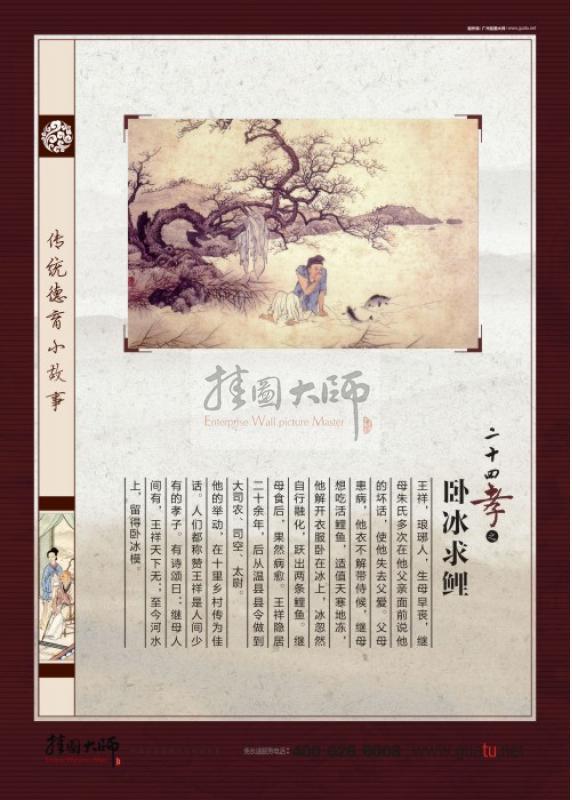 传统德育小故事
挂图大师
Enterprise Wall picture Master
二十四孝之
卧冰求鲤
王祥，琅琊人，生母早丧，继
母朱氏多次在他父亲面前说他
的坏话，使他失去父爱。父母
患病，他衣不解带侍候，继母
想吃活鲤鱼，适值天寒地冻，
他解开衣服卧在冰上，冰忽然
自行融化，跃出两条鲤鱼。继
母食后，果然病愈。王祥隐居
二十余年，后从温县县令做到
大司农、司空、太尉。
他的举动，在十里乡村传为佳
话。人们都称赞王祥是人间少
有的孝子。有诗颂曰：继母人
间有，王祥天下无；至今河水
上，留得卧冰模。
挂图大师
免长途服务电话：400-626-6008
www.guatu.net